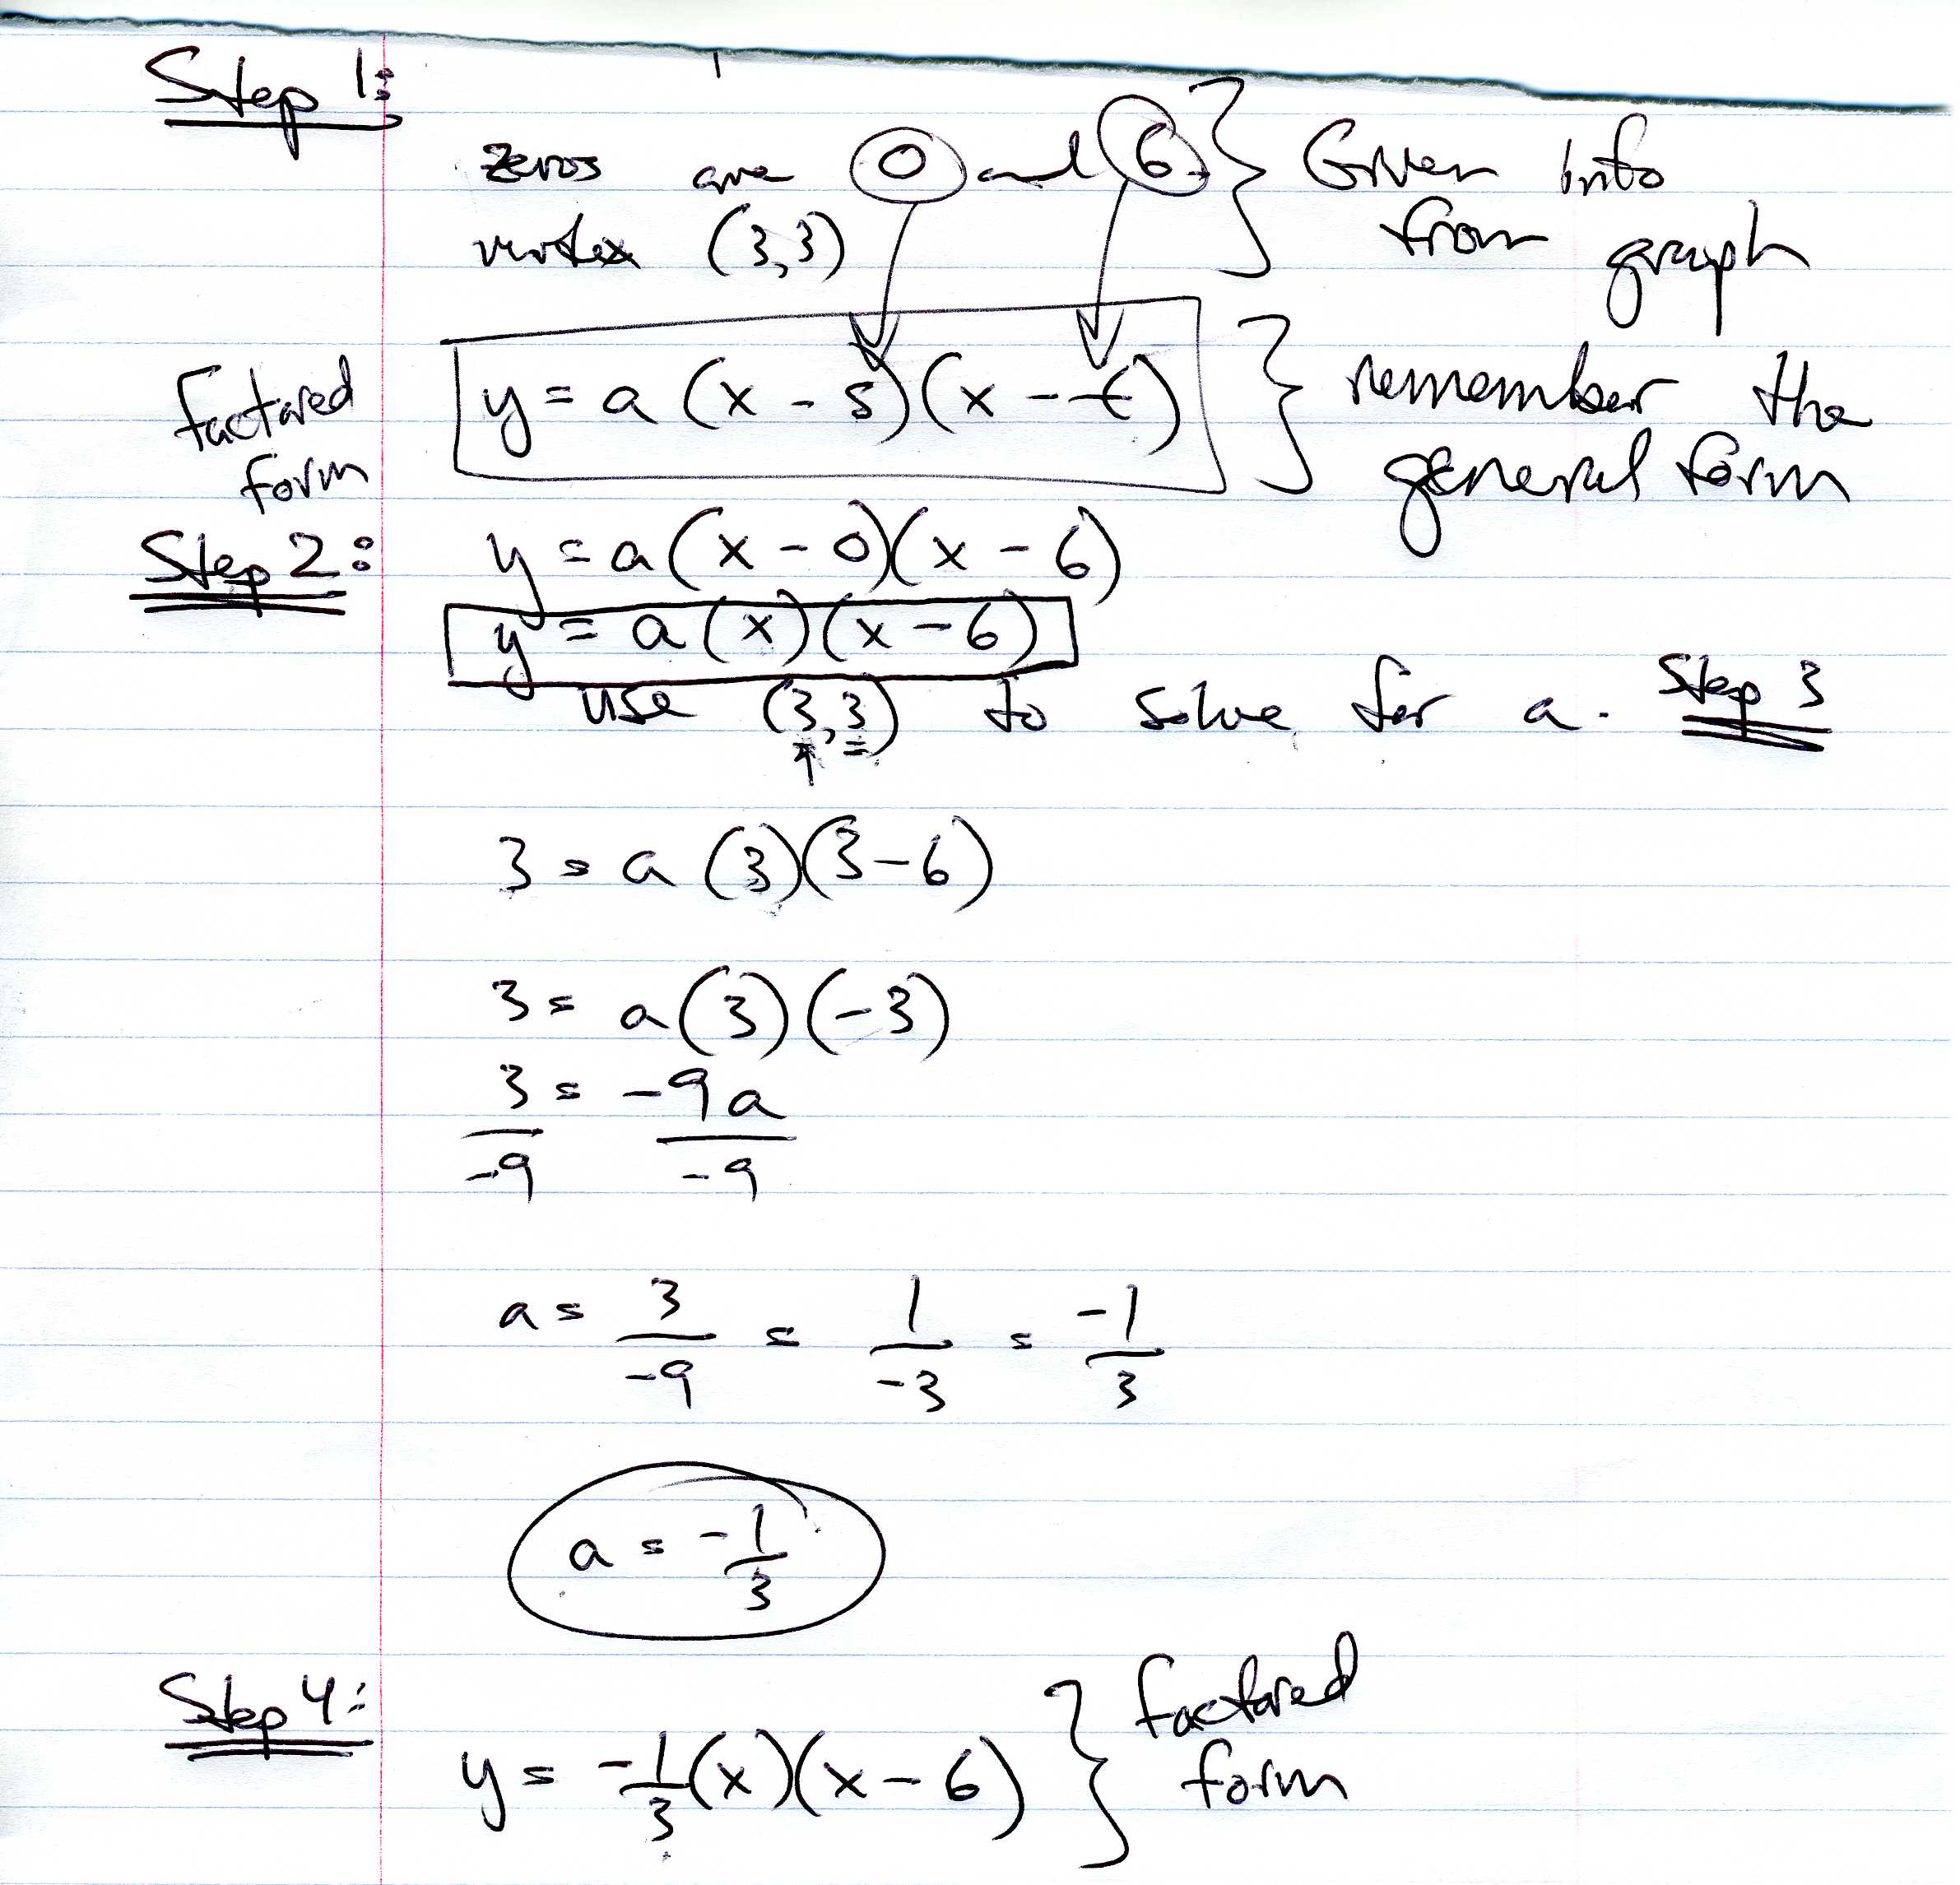 Step 1:
zeros are 0 and 6 } Given info
vertex (3,3) from graph
factored form y = a(x - s)(x - t) } remember the general form
Step 2: y = a(x - 0)(x - 6)
y = a(x)(x - 6)
use (3,3) to solve for a. Step 3
3 = a(3)(3-6)
3 = a(3)(-3)
3 = -9a
-9 -9
a = 3/-9 = 1/-3 = -1/3
a = -1/3
Step 4:
y = -1/3(x)(x - 6) } factored form